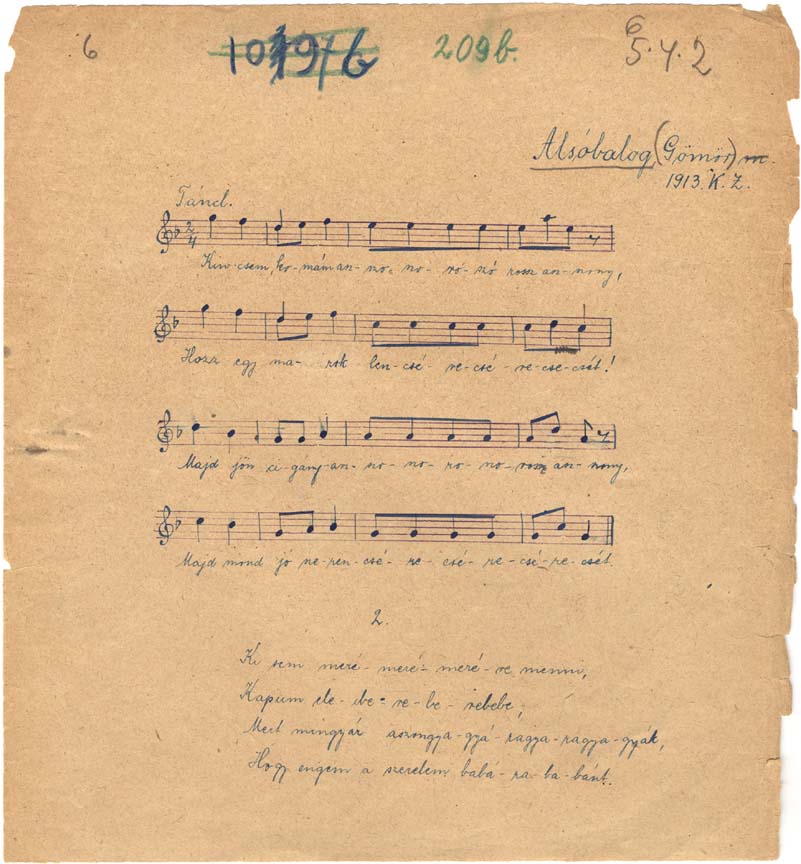 6
209b.
6
5.4.2
Alsóbalog (Gömör) m.
1913. K. Z.
Táncd.
2/4
Kin-csem, ko-mámasz-szo-no-ro-szó rossz an-nony,
Hozz egy ma-rok len-csé-re-csé-re-cse-csét!
Majd jön ci-gány-an-no-no-ro-no-rossz an-nony,
Majd mond jó ne-ren-csé-re-csé-re-csé-re-csét.
2.
Ki sem meré-meré-meré-re menni,
Kapum ele-be-re-be-rebebe,
Mert mingyár aszongya-gyá-ragya-ragya-gyák,
Hogy engem a szerelem babá-ra-ba-bánt.